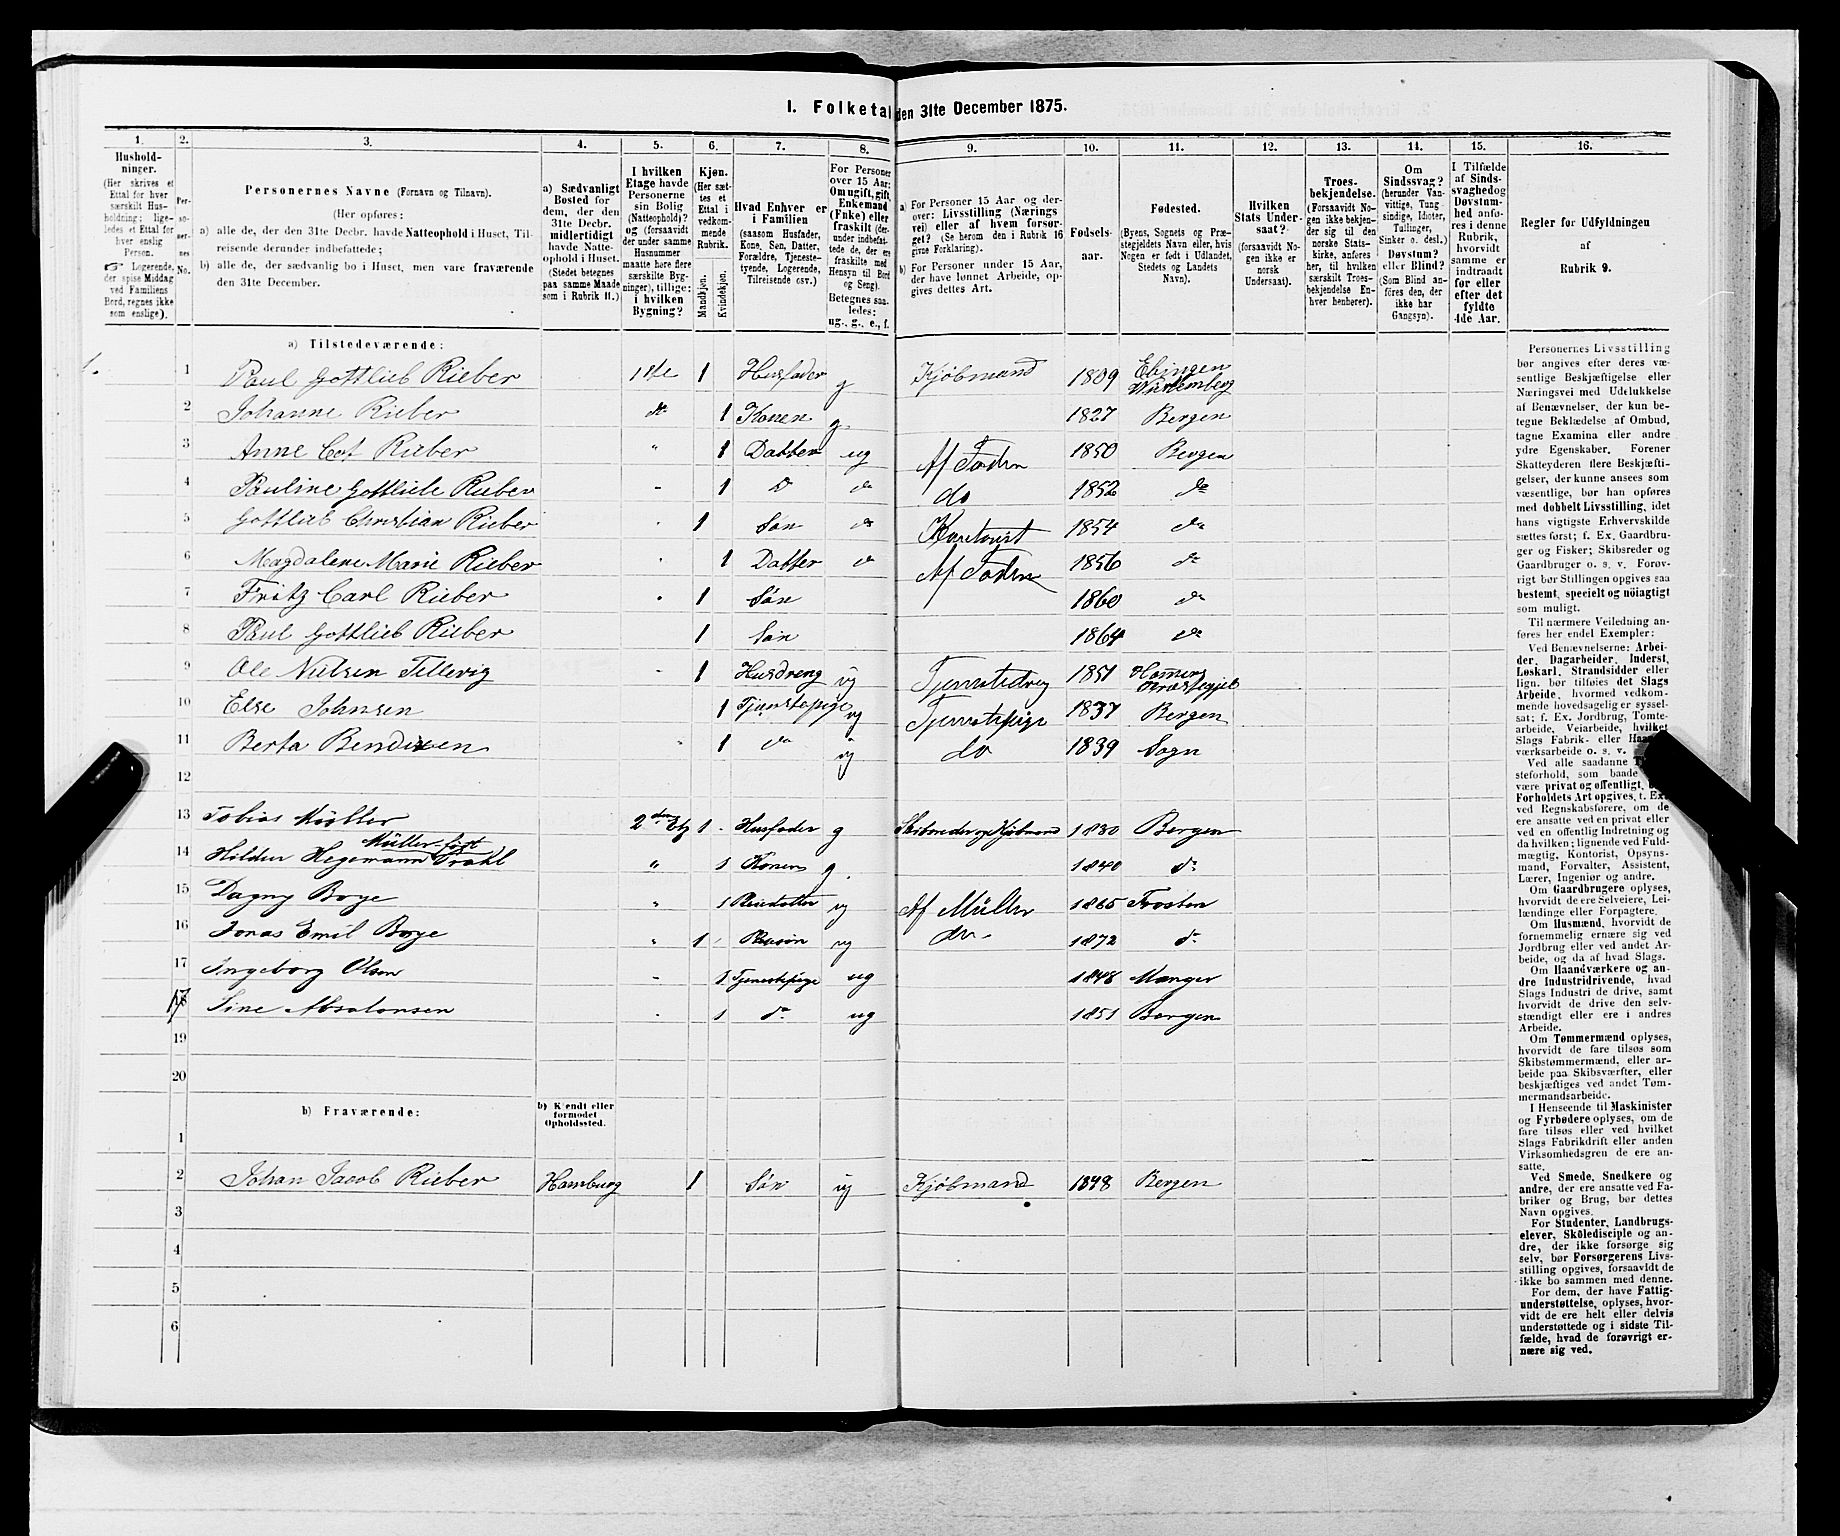 I. Folketal den 31te December 1875.
1. 2. 3. 4. 5. 6. 7. 8. 9. 10. 11. 12. 13. 14. 15. 16.
Hushold-
ninger.
(Her skrives et
Ettal for hver
særskilt Hus-
holdning; lige-
ledes et Ettal for
hver enslig
Person.
☞ Logerende,
der spise Middag
ved Familiens
Bord, regnes ikke
som enslige).
Per-
so-
ner-
nes
No.
Personernes Navne (Fornavn og Tilnavn).
(Her opføres:
a) alle de, der den 31te Decbr. havde Natteophold i Huset, Til-
reisende derunder indbefattede;
b) alle de, der sædvanlig bo i Huset, men vare fraværende
den 31te December.
a) Sædvanligt
Bosted for
dem, der den
31te Decbr.
midlertidigt
havde Natte-
ophold i Huset.
(Stedet betegnes
paa samme Maade
som i Rubrik 11.)
I hvilken
Etage havde
Personerne
sin Bolig
(Natteophold)?
og (forsaavidt
der under samme
Husnummer
maatte høre flere
særskilte Byg-
ninger), tillige:
i hvilken
Bygning?
Kjøn.
(Her sæt-
tes et
Ettal i
vedkom-
mende
Rubrik.
Mandkjøn.
Kvindekjøn.
Hvad Enhver er
i Familien
(saasom Husfader,
Kone, Søn, Datter,
Forældre, Tjeneste-
tyende, Logerende,
Tilreisende osv.)
For Personer
over 15 Aar:
Om ugift, gift,
Enkemand
(Enke) eller
fraskilt (der-
under indbefat-
tede de, der ere
fraskilte med
Hensyn til Bord
og Seng).
Betegnes saa-
ledes:
ug., g., e., f.
a) For Personer 15 Aar og der-
over: Livsstilling (Nærings
vei) eller af hvem forsør-
get? (Se herom den i Rubrik 16
givne Forklaring).
b) For Personer under 15 Aar,
der have lønnet Arbeide, op-
gives dettes Art.
Fødsels-
aar.
Fødested.
(Byens, Sognets og Præ-
stegjeldets Navn eller, hvis
Nogen er født i Udlandet,
Stedets og Landets
Navn).
Hvilken
Stats Under-
saat?
(forsaavidt No-
gen ikke er
norsk
Undersaat).
Troes-
bekjendelse.
(Forsaavidt No-
gen ikke bekjen-
der sig til den
norske Stats-
kirke, anføres
her, til hvilken
særskilt Troes-
bekjendelse En-
hver henhører).
Om
Sindssvag?
(herunder Van-
vittige, Tung-
sindige, Idioter,
Tullinger,
Sinker o. desl.)
Døvstum?
eller Blind?
(Som Blind an-
føres den, der
ikke har
Gangsyn).
I Tilfælde
af Sinds-
svaghedog
Døvstum-
hed anfø-
res i denne
Rubrik,
hvorvidt
samme er
indtraadt
før eller
efter det
fyldte
4de Aar.
Regler for Udfyldningen
af
Rubrik 9.
a) Tilstedeværende:
1. 1 Paul Gottlieb Rieber 1ste 1 Husfader g Kjöbmand 1809 Ebingen Würtemberg
2 Johanne Rieber do 1 Konen g. 1827 Bergen
3 Anne Cat Rieber " 1 Datter ug Af Faderen 1850 Bergen
4 Pauline Gottliebe Rieber - 1 D do do 1852 do
5 Gottlieb Christian Rieber 1 Søn do Kontorist 1854 do
6 Magdalene Marie Rieber 1 Datter do Af Faderen 1856 do
7 Fritz Carl Rieber 1 Søn 1860 do
8 Paul Gottlieb Rieber 1 Søn 1864 do
9 Ole Nielsen Tellevig - 1 Husdreng ug Tjenestedreng 1851 Hammer Præstegjel
10 Else Johnsen 1 Tjenstepige ug Tjenestepige 1837 Bergen
11 Berta Bendixen " 1 do ug do 1839 Sogn
12
13 Tobias Müller 2den Etg 1 Husfader g Skibsreder og Kjöbmand 1830 Bergen
14 Hilder Hegemann Müller født Trahl " 1 Konen g. 1840 do
15 Dagny Borge " 1 Pleiedatter ug Af Müller 1865 Frosten
16 Jonas Emil Borge " 1 Pleiesøn ug do 1872 do
17 Ingeborg Olsen - 1 Tjenestepige ug 1848 Manger
18 Sine Absalonsen - 1 do ug 1851 Bergen
19
20
b) Fraværende:
b) Kjendt eller
formodet
Opholdssted.
1
2 Johan Jacob Rieber Hamburg 1 Søn ug Kjöbmand 1848 Bergen
3
4
5
6
Personernes Livsstilling
bør angives efter deres væ-
sentlige Beskjæftigelse eller
Næringsvei med Udelukkelse
af Benævnelser, der kun be-
tegne Beklædelse af Ombud,
tagne Examina eller andre
ydre Egenskaber. Forener
Skatteyderen flere Beskjæfti-
gelser, der kunne ansees som
væsentlige, bør han opføres
med dobbelt Livsstilling, idet
hans vigtigste Erhvervskilde
sættes først; f. Ex. Gaardbru-
ger og Fisker; Skibsreder og
Gaardbruger o. s. v. Forøv-
rigt bør Stillingen opgives saa
bestemt, specielt og nöiagtigt
som muligt.
Til nærmere Veiledning an-
føres her endel Exempler:
Ved Benævnelserne: Arbei-
der, Dagarbeider, Inderst,
Løskarl, Strandsidder eller
lign. bør tilføies det Slags
Arbeide, hvormed vedkom-
mende hovedsagelig er syssel-
sat; f. Ex. Jordbrug, Tomte-
arbeide, Veiarbeide, hvilket
Slags Fabrik- eller Haand-
værksarbeide o. s. v.
Ved alle saadanne
steforhold, som baade
være privat og offentligt,
Forholdets Art opgives, t. Ex.
ved Regnskabsførere, om de
ere ansatte ved en privat eller
ved en offentlig Indretning og
da hvilken; lignende ved Fuld-
mægtig, Kontorist, Opsyns-
mand, Forvalter, Assistent,
Lærer, Ingeniør og andre.
Om Gaardbrugere oplyses,
hvorvidt de ere Selveiere, Lei-
lændinge eller Forpagtere.
Om Husmænd, hvorvidt de
fornemmelig ernære sig ved
Jordbrug eller ved andet Ar-
beide, og da af hvad Slags.
Om Haandværkere og an-
dre Industridrivende, hvad
Slags Industri de drive, samt
hvorvidt de drive den selv-
stændigt eller ere i andres
Arbeide.
Om Tømmermænd oplyses,
hvorvidt de fare tilsøs som
Skibstømmermænd, eller ar-
beide paa Skibsværfter, eller
beskjæftiges ved andet Tøm-
mermandsarbeide.
I Henseende til Maskinister
og Fyrbødere oplyses, om de
fare tilsøs eller ved hvilket
Slags Fabrikdrift eller anden
Virksomhedsgren de ere an-
satte.
Ved Smede, Snedkere og
andre, der ere ansatte ved Fa-
briker og Brug, bør dettes
Navn opgives.
For Studenter, Landbrugs-
elever, Skoledisciple og an-
dre, der ikke forsørge sig
selv, bør Forsørgerens Livs-
stilling opgives, forsaavidt de
ikke bo sammen med denne.
For dem, der have Fattig-
understøttelse, oplyses, hvor-
vidt de ere helt eller delvis
understøttede og i sidste Til-
fælde, hvad de forøvrigt er-
nære sig ved.